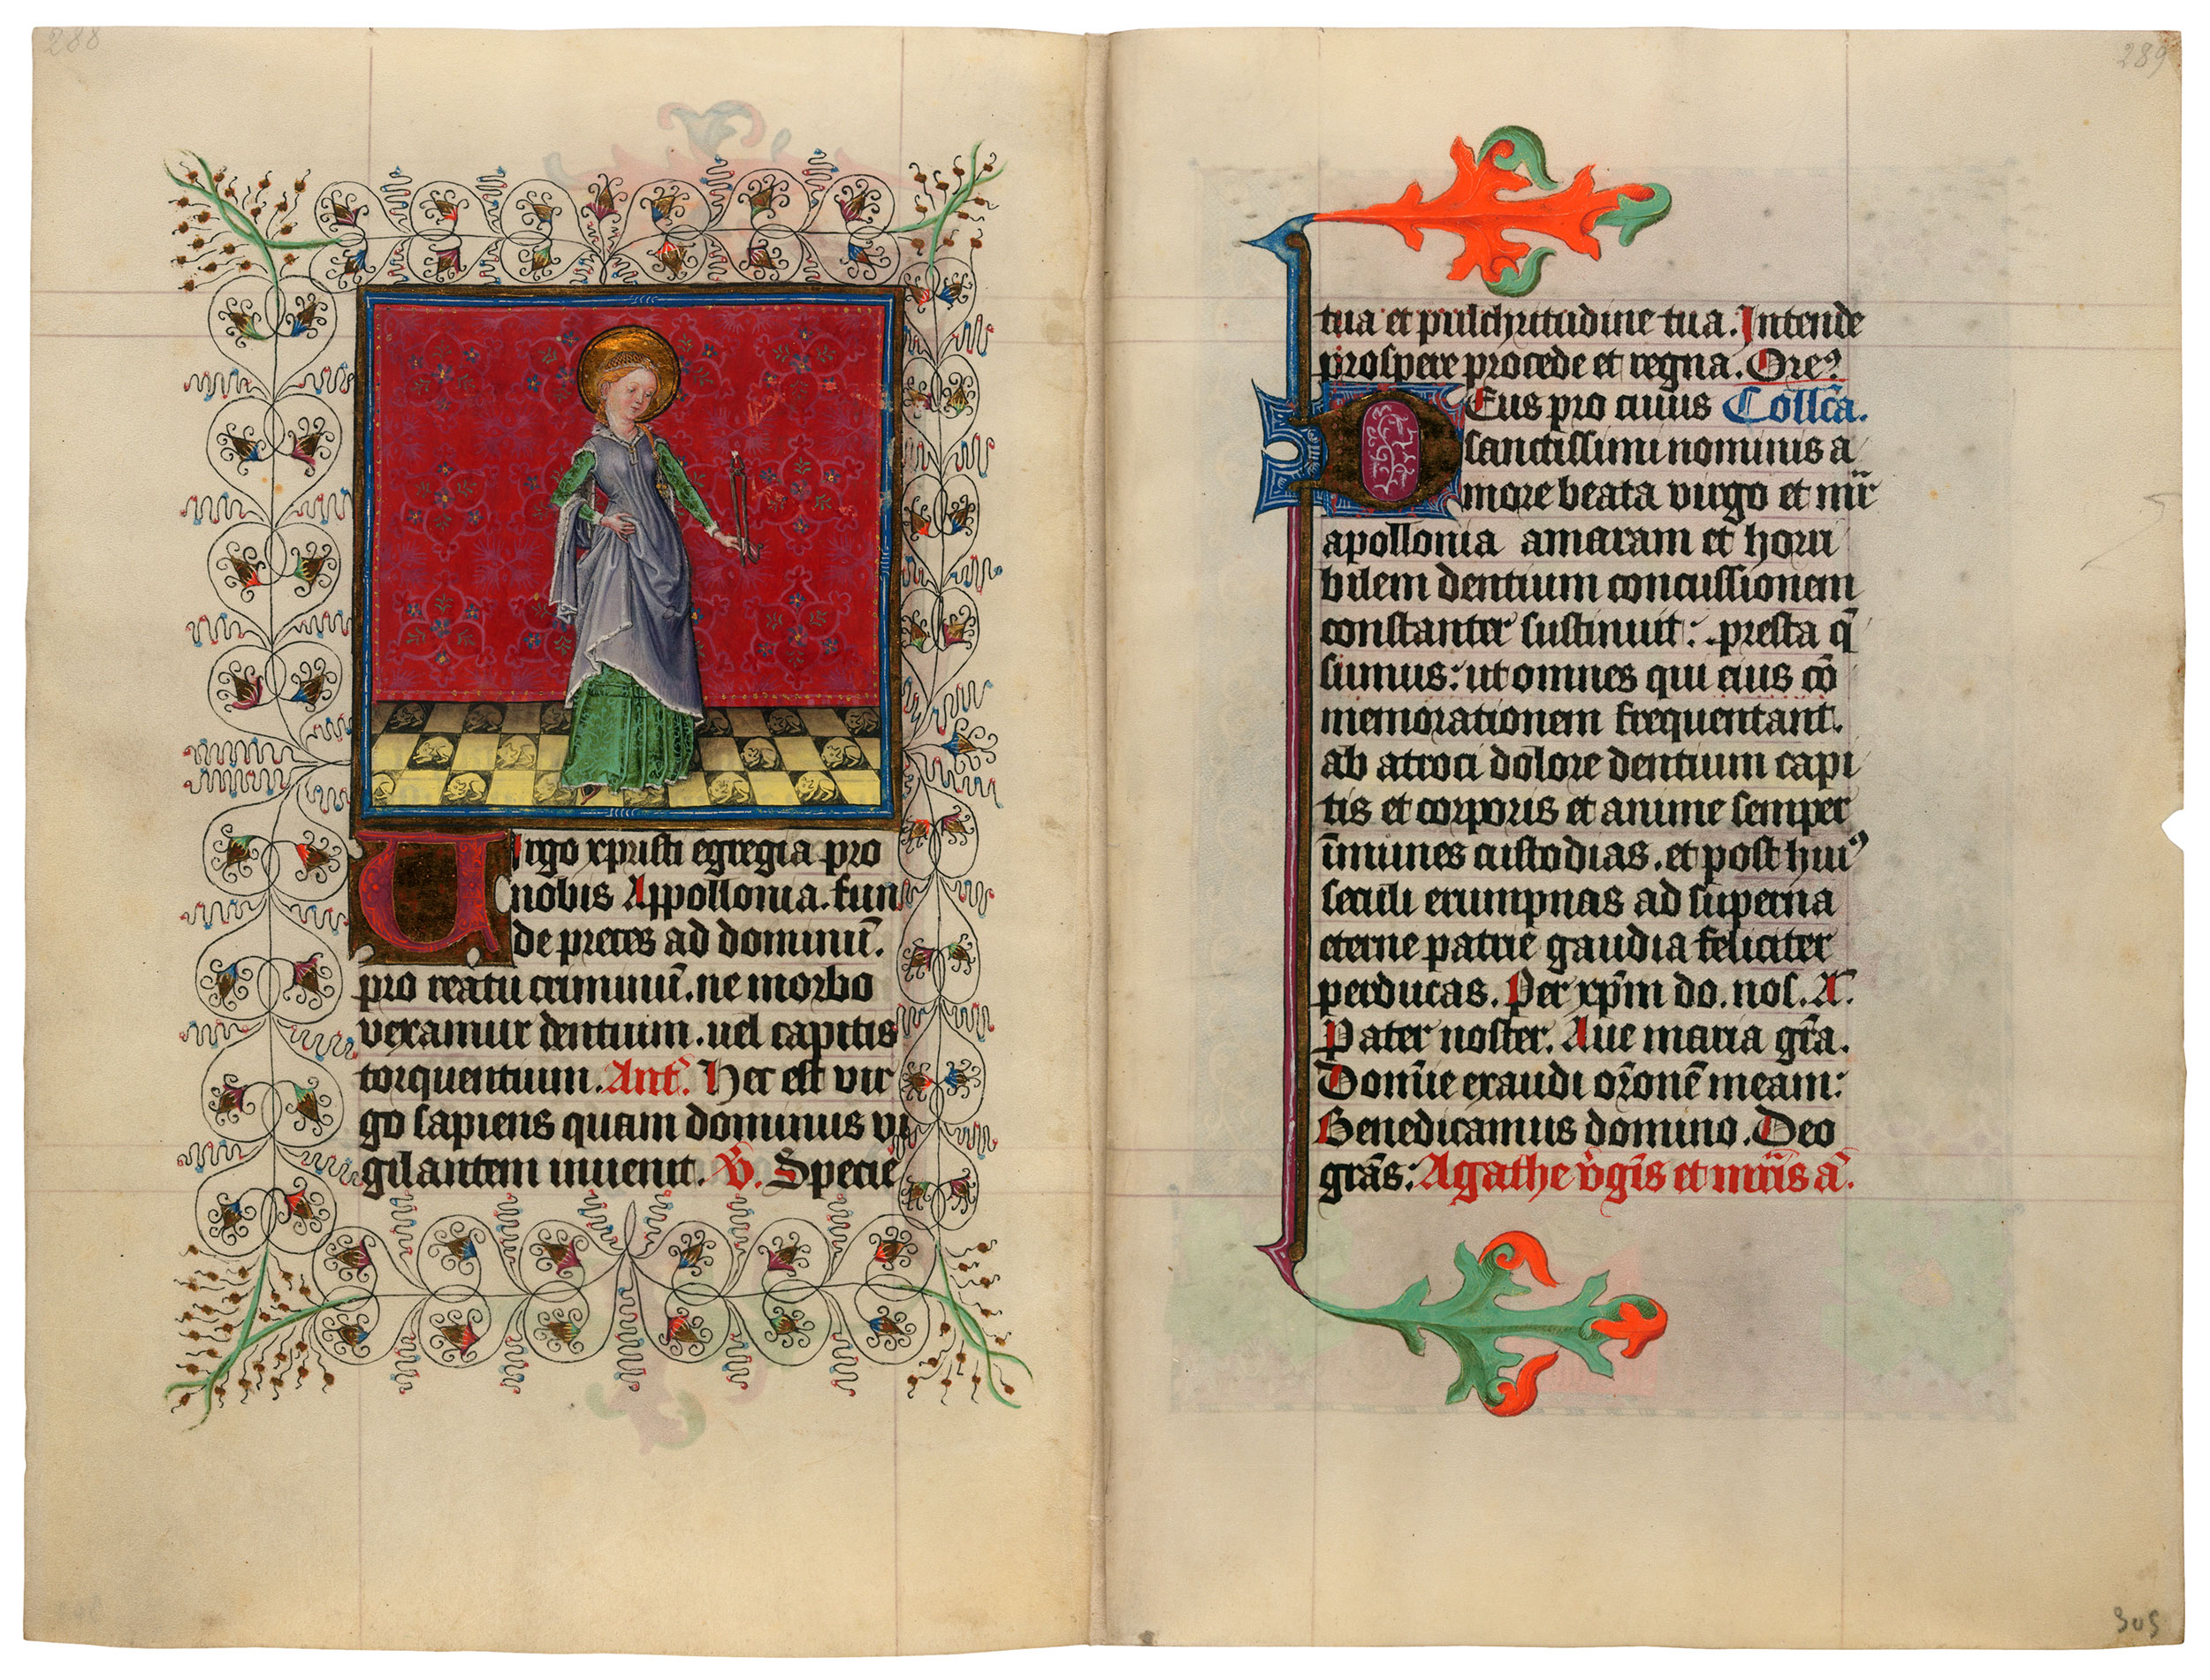 288
Virgo xpristi egregia pro
nobis Appollonia. fun
de preces ad dominū.
pro reatu criminū. ne morbo
vexamur dentium. uel capitis
torquentium. Ant̄. Hec est vir
go sapiens quam dominus vi
gilantem inuenit. V̄. Specie
289
tua et pulchritudine tua. Intende
prospere procede et regna. Oreꝰ
Deus pro cuius Collc̄a.
sanctissimi nominis a
more beata virgo et mr̄
apollonia amaram et horri
bilem dentium concussionem
constanter sustinuit: presta q̄
sumus: ut omnes qui eius cō
memorationem frequentant.
ab atroci dolore dentium capi
tis et corporis et anime semper
īmunes custodias. et post huiꝰ
seculi erumpnas ad superna
eterne patrie gaudia feliciter
perducas. Per xp̄m do. nos. A.
Pater noster. Aue maria gr̄a.
Domīe exaudi or̄onē meam:
Benedicamus domino. Deo
grās: Agathe v̄gīs et mr̄is ā.
305